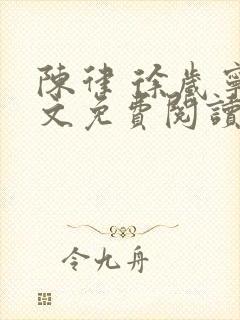 陳律 徐歲寧
文免費閱讀
令九舟